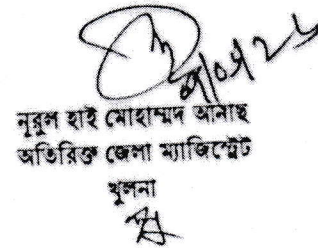 নূরুল হাই মোহাম্মদ আনাছ
অতিরিক্ত জেলা ম্যাজিস্ট্রেট
খুলনা